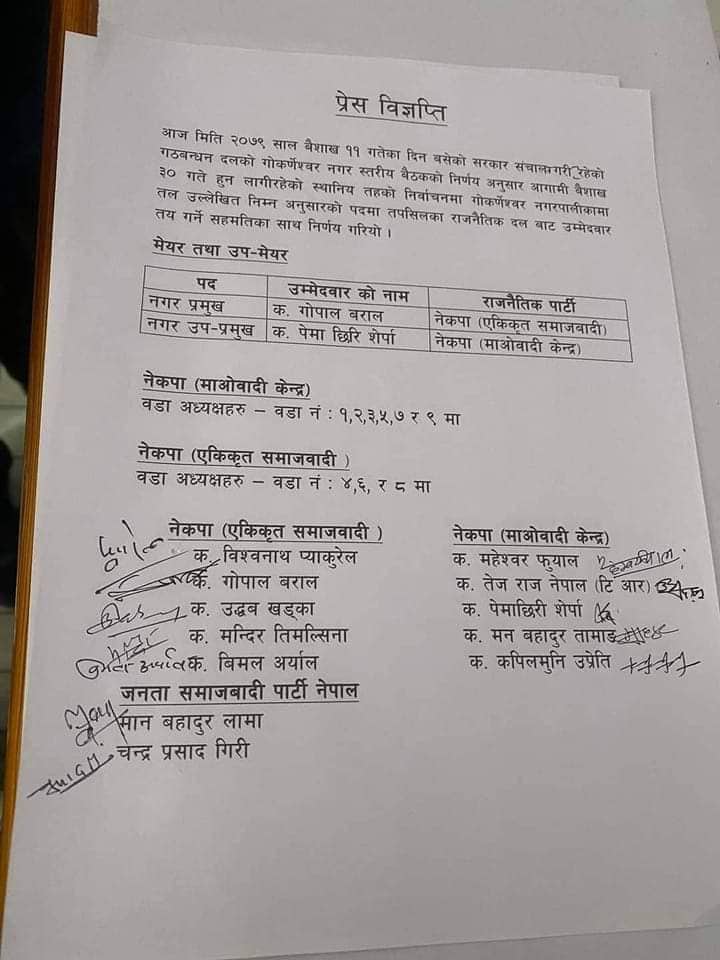 प्रेस विज्ञप्ति
आज मिति २०७९ साल बैशाख ११ गतेका दिन बसेको सरकार संचालन गरी रहेको
गठबन्धन दलको गोकर्णेश्वर नगर स्तरीय बैठकको निर्णय अनुसार आगामी बैशाख
३० गते हुन लागीरहेको स्थानिय तहको निर्वाचनमा गोकर्णेश्वर नगरपालीकामा
तल उल्लेखित निम्न अनुसारको पदमा तपसिलका राजनैतिक दल बाट उम्मेदवार
तय गर्ने सहमतिका साथ निर्णय गरियो ।
मेयर तथा उप-मेयर
पद उम्मेदवार को नाम राजनैतिक पार्टी
नगर प्रमुख क. गोपाल बराल नेकपा (एकिकृत समाजबादी)
नगर उप-प्रमुख क. पेमा छिरि शेर्पा नेकपा (माओबादी केन्द्र)
नेकपा (माओवादी केन्द्र)
वडा अध्यक्षहरु – वडा नं : १,२,३,५,७ र ९ मा
नेकपा (एकिकृत समाजवादी )
वडा अध्यक्षहरु – वडा नं : ४,६, र ८ मा
नेकपा (एकिकृत समाजवादी )
क. विश्वनाथ प्याकुरेल
क. गोपाल बराल
क. उद्धब खड्का
क. मन्दिर तिमल्सिना
क. बिमल अर्याल
जनता समाजबादी पार्टी नेपाल
मान बहादुर लामा
चन्द्र प्रसाद गिरी
नेकपा (माओवादी केन्द्र)
क. महेश्वर फुयाल
क. तेज राज नेपाल (टि आर)
क. पेमाछिरी शेर्पा
क. मन बहादुर तामाङ
क. कपिलमुनि उप्रेति